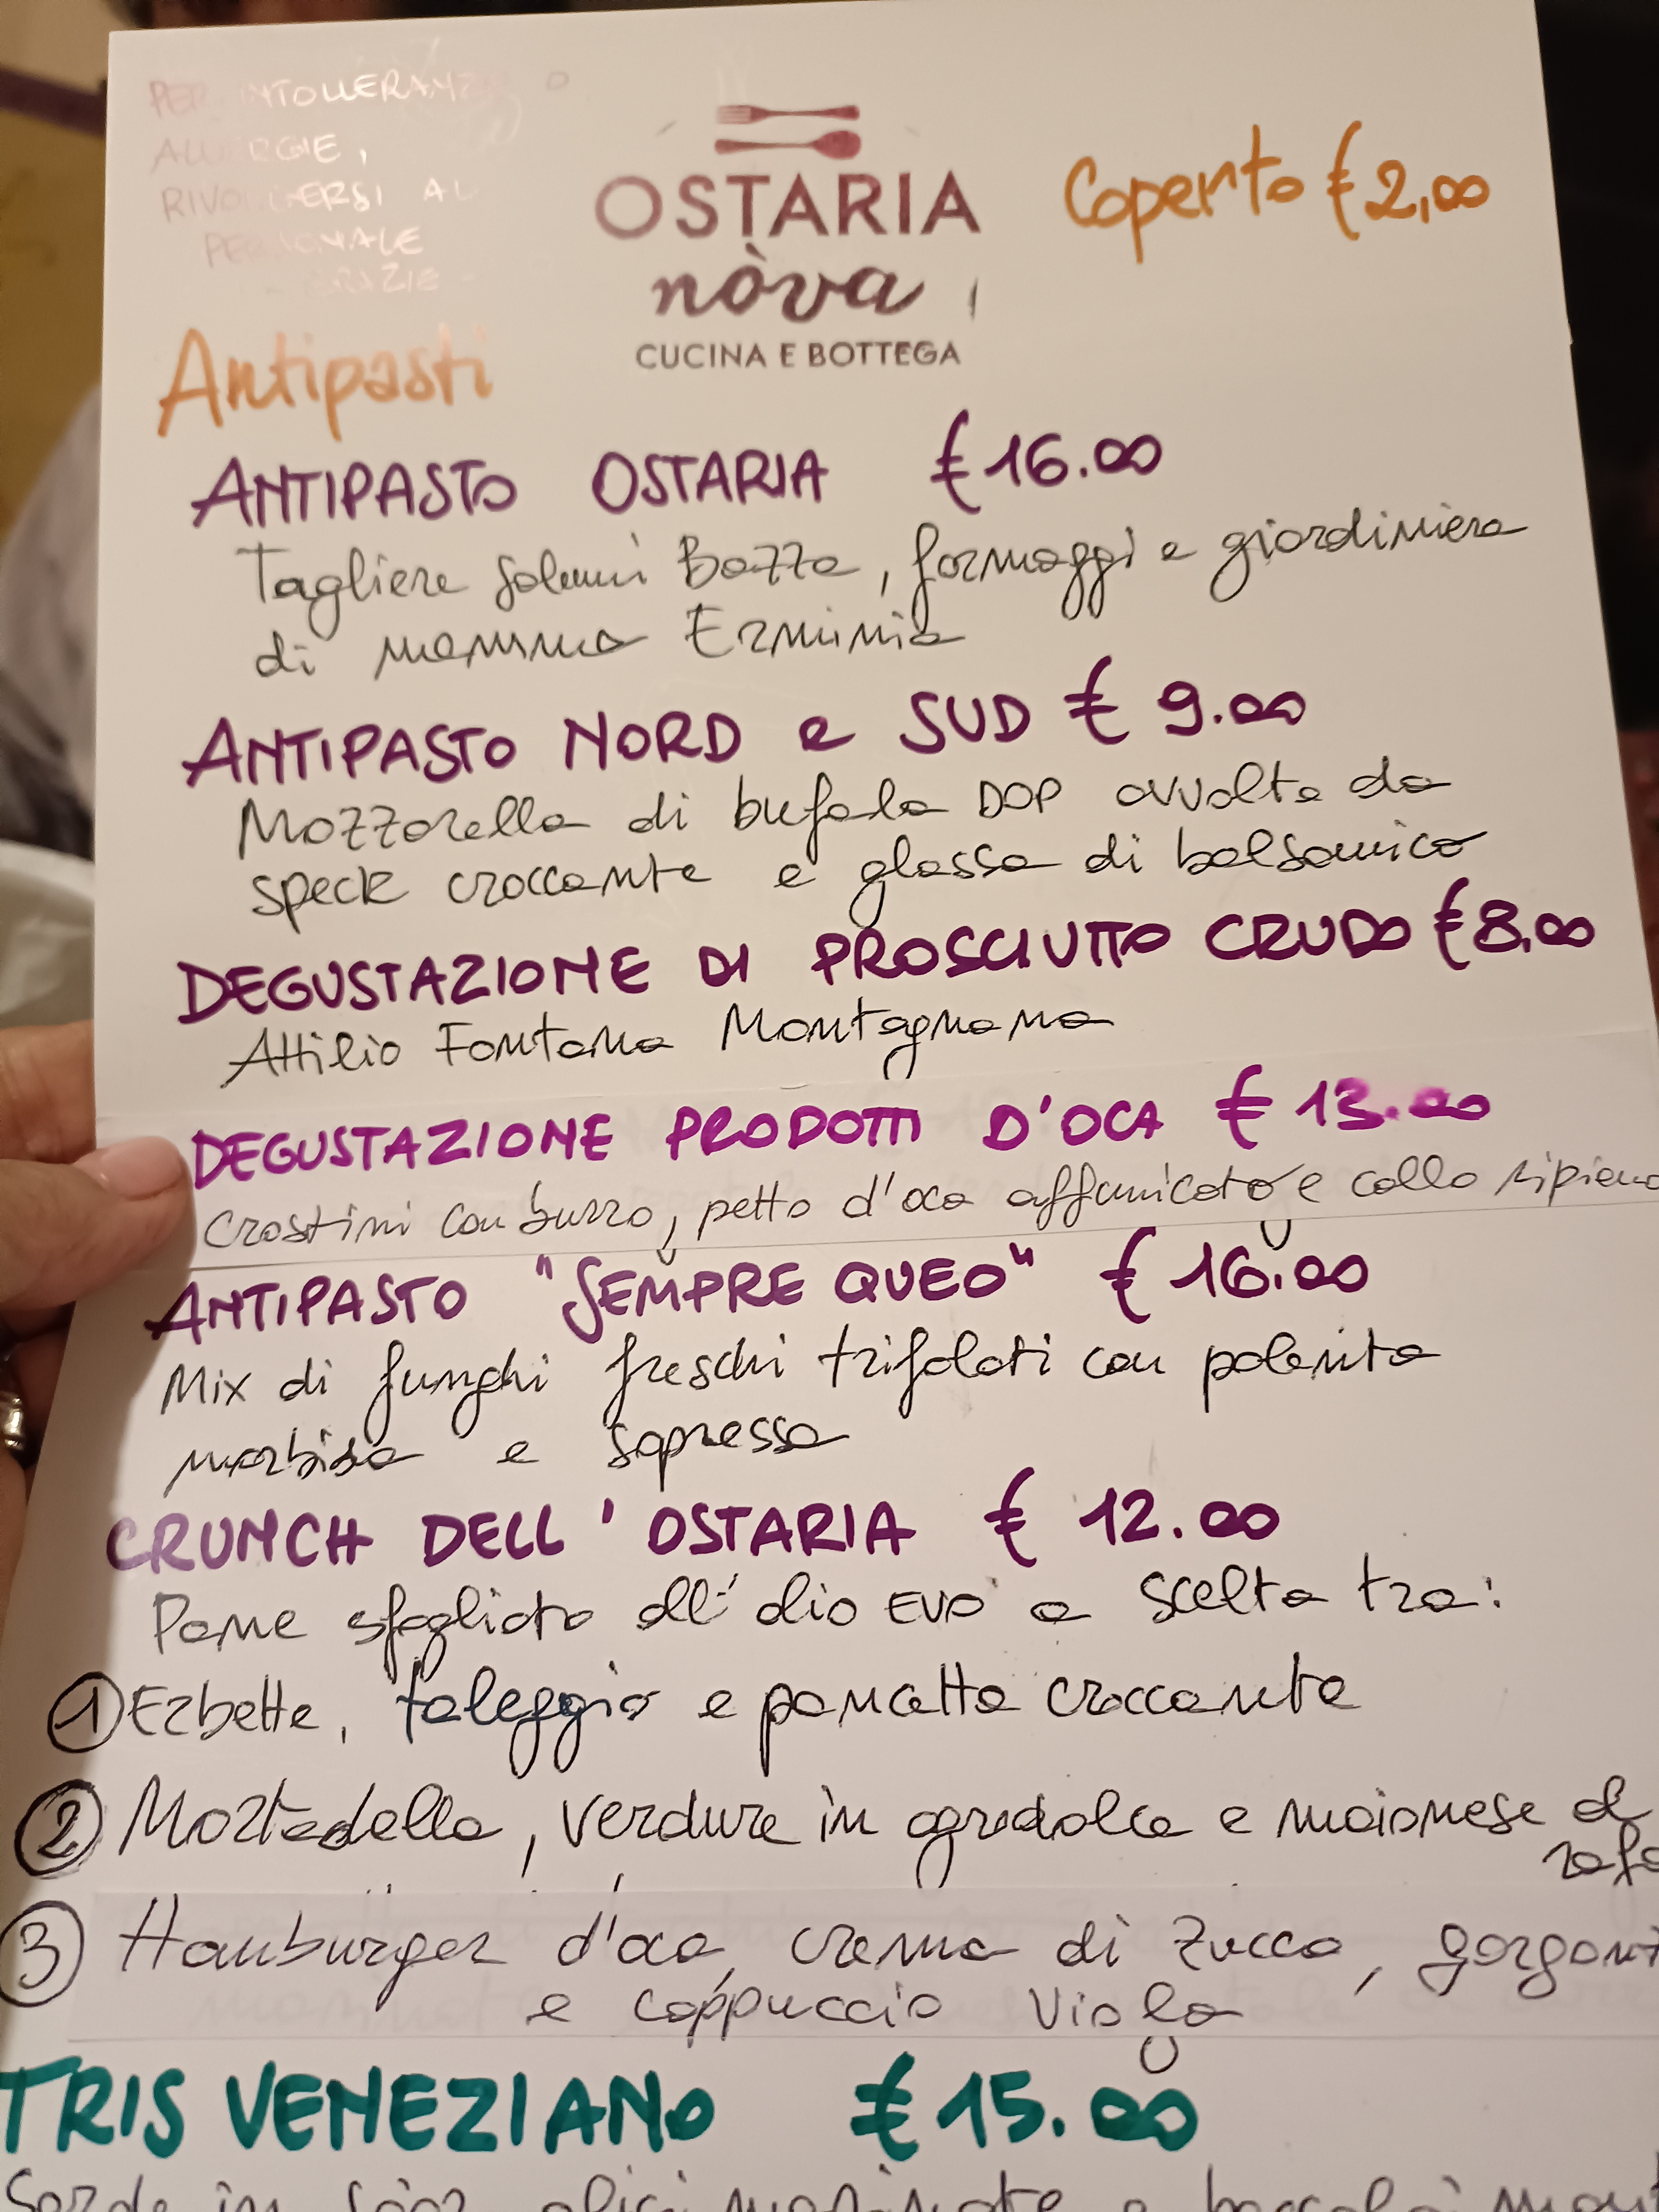 PER INTOLLERANZE O
ALLERGIE,
RIVOLGERSI AL
PERSONALE
- GRAZIE -
OSTARIA
nòva
CUCINA E BOTTEGA
Coperto € 2,00
Antipasti
ANTIPASTO OSTARIA € 16.00
Tagliere salumi Bazza, formaggi e giardiniera
di mamma Erminia
ANTIPASTO NORD e SUD € 9.00
Mozzarella di bufala DOP avvolta da
speck croccante e glassa di balsamico
DEGUSTAZIONE DI PROSCIUTTO CRUDO € 8,00
Attilio Fontana Montagnana
DEGUSTAZIONE PRODOTTI D'OCA € 13.00
Crostini con burro, petto d'oca affumicato e collo ripieno
ANTIPASTO "SEMPRE QUEO" € 16.00
Mix di funghi freschi trifolati con polenta
morbida e sopressa
CRUNCH DELL'OSTARIA € 12.00
Pane sfogliato all'olio EVO a scelta tra:
1 Erbette, taleggio e pancetta croccante
2 Mortadella, verdure in agrodolce e maionese al
rafa
3 Hamburger d'oca, crema di zucca, gorgonz
e cappuccio viola
TRIS VENEZIANO € 15.00
Sarde in saor, alici marinate e baccalà mant